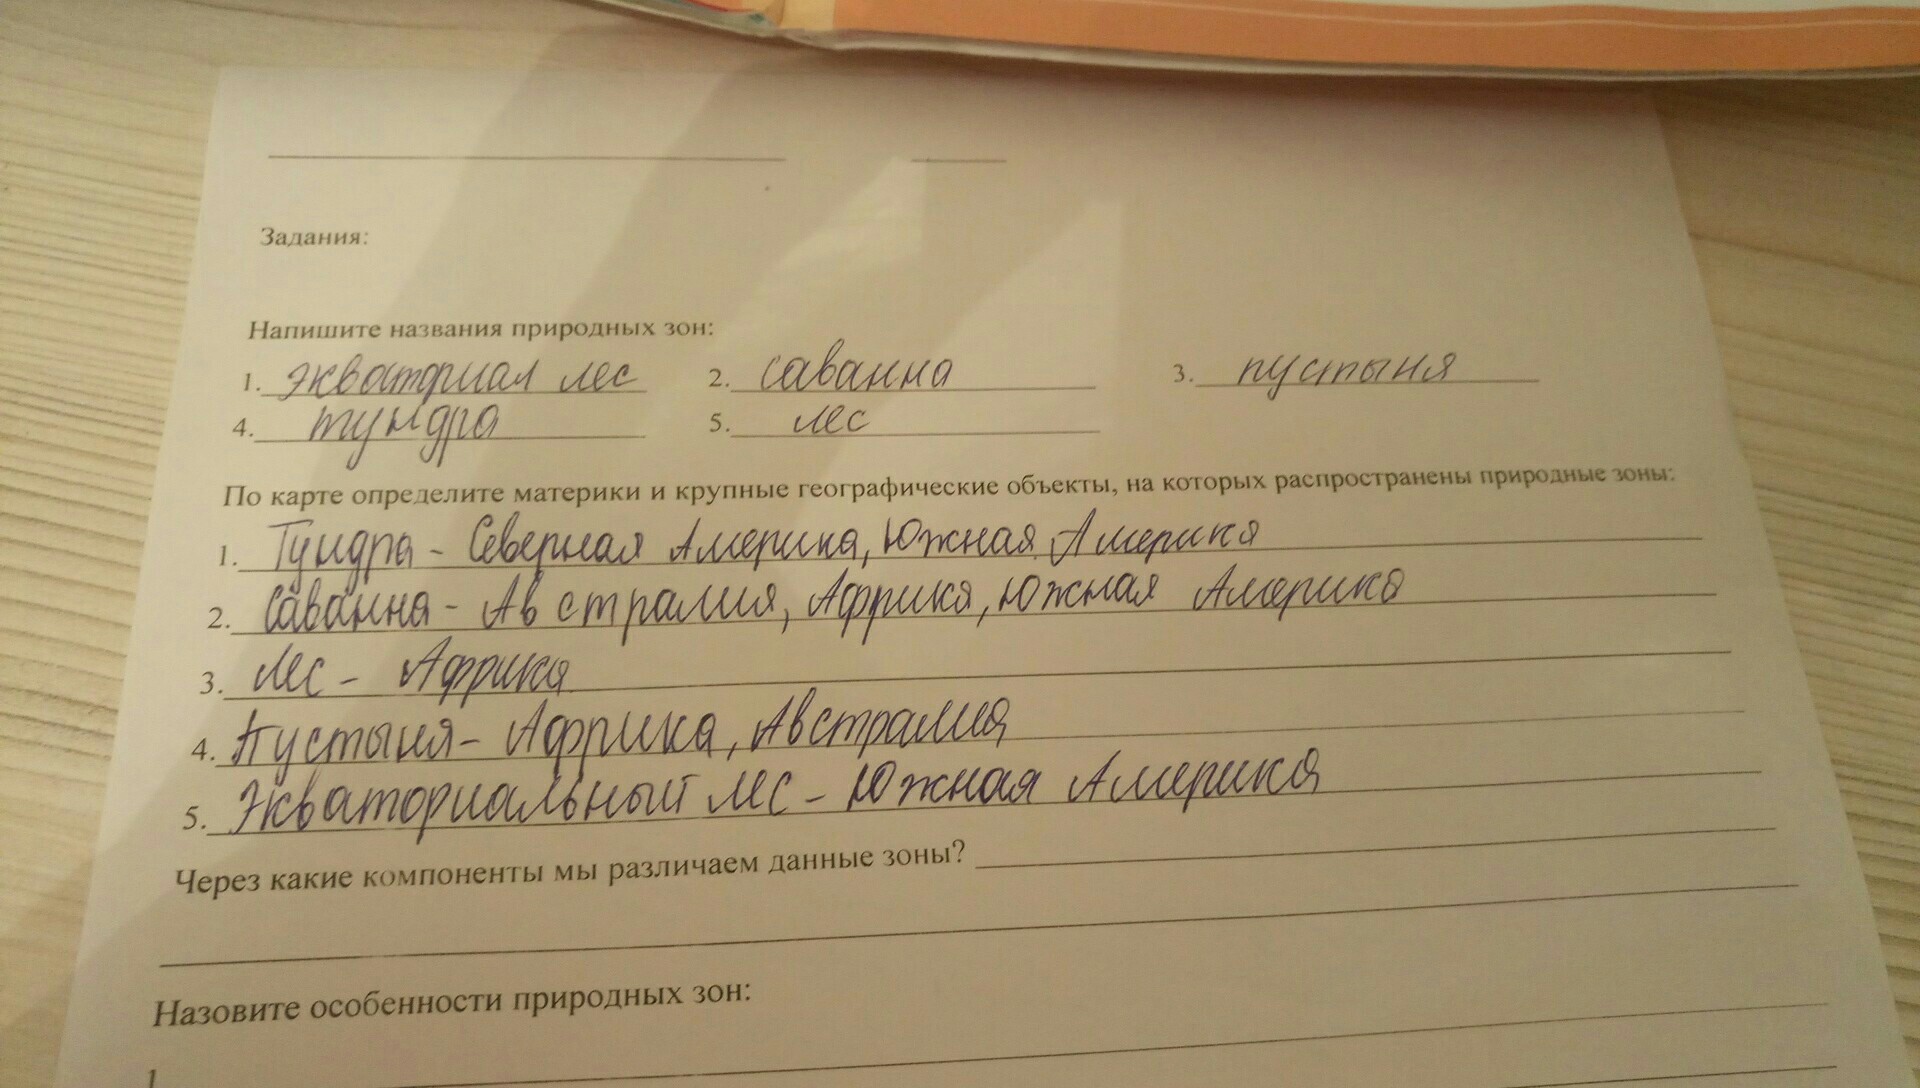 Задания:
Напишите названия природных зон:
1. экваториал лес 2. саванна 3. пустыня
4. тундра 5. лес
По карте определите материки и крупные географические объекты, на которых распространены природные зоны:
1. Тундра - Северная Америка, Южная Америка
2. Саванна - Австралия, Африка, Южная Америка
3. Лес - Африка
4. Пустыня - Африка, Австралия
5. Экваториальный лес - Южная Америка
Через какие компоненты мы различаем данные зоны?
Назовите особенности природных зон:
1